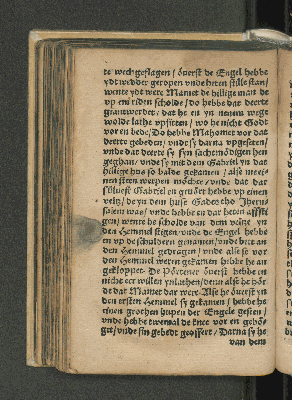 te wech geslagen / överst de Engel hebbe
ydt wedder geropen vnde heten stille stan /
wente ydt were Mamet de hillige man de
vp em riden scholde / do hebbe dat deerte
geantwerdet / dat he en nenen wege
wolde lathe vpsitten / wo he nicht Godt
vor en bede / Do hebbe Mahomet vor dat
deerte gebeden / vnde sy darna vpgeseten /
vnde dat deerte sy sachtmödigen hen
geghan / vnde sy mit dem Gabriel yn dat
hillige hus so balde gekamen / alse men ei-
nen steen werpen möchte / vnde dat dat
sülueste Gabriel en geuört hebbe vp einen
veltz / de yn dem huse Gades tho Iheru-
salem was / vnde hebbe en dar heten affsti-
gen / wente he scholde van dem veltz yn
den Hemmel stigen / vnde de Engel hebbe
en vp de schuldern genamen / vnde hen an
den Hemmel gedragen / vnde alse se vor
den Hemmel weren gekamen hebbe he an
gekloppet. De Pörtener överst hebbe en
nicht eer willen ynlathen / denn alse he hör-
de dat Mamet dar were. Alse he överst yn
den ersten Hemmel sy gekamen / hebbe he
einen groten hupen der Engele geseen /
vnde hebbe twemal de knee vor en gebö-
get / vnde sin gebedt geoffert / Darna sy he
van dem